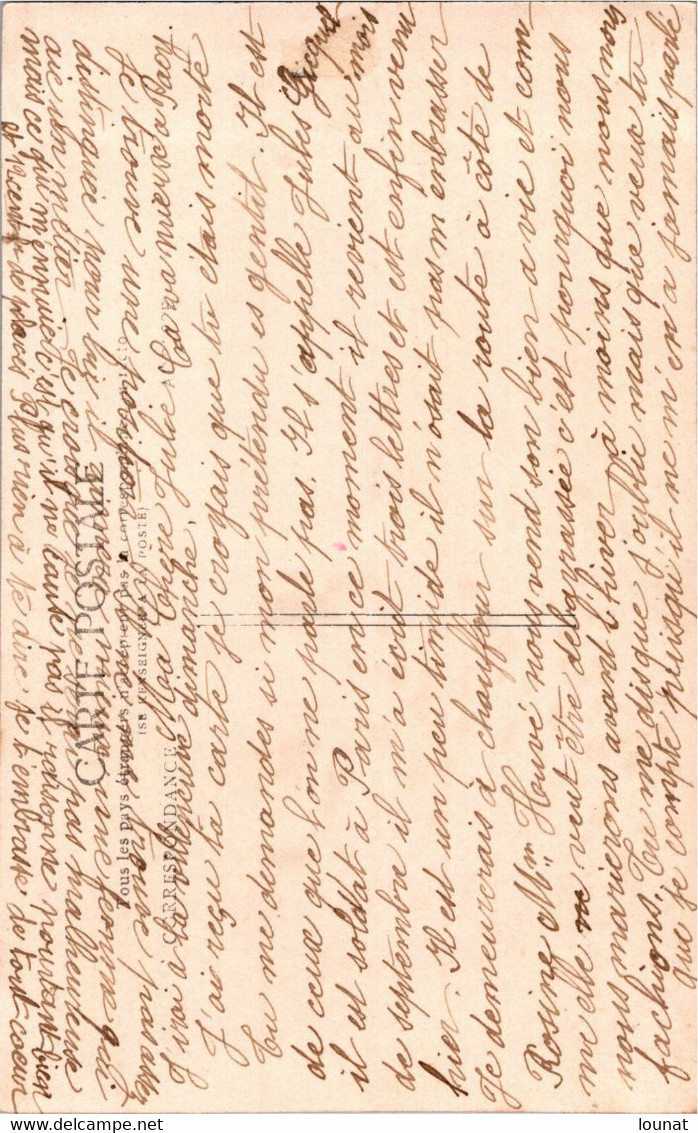 CARTE POSTALE
Tous les pays étrangers n'acceptent pas la correspondance au recto.
(SE RENSEIGNER A LA POSTE)
CORRESPONDANCE
dimanche,
Ma Chère Julie
J'ai reçu ta carte je croyais que tu étais morte
Tu me demandes si mon prétendu es gentil. Il est
de ceux que l'on ne parle pas. Il s'appelle Jules Gicquel
il est soldat à Paris en ce moment il revient au mois
de septembre il m'a écrit trois lettres et est enfin venu
hier. Il est un peu timide il n'osait pas m'enbrasser
Je demeurerais à chauffour sur la route à côté de
Rosine Mme Houvé nous vend son bien a vie et com
me elle veut être débarrassée c'est pourquoi nous
nous marierons avant l'hiver à moins que nous nous
fachions. Tu me dis que j'oublie mais que veux tu
que je compte puisqu'il ne m'en a jamais parlé
je trouve une position pour pas assez
distinguée pour lui il une femme qui
aie un métier. Je crois que je ne serai pas malheureuse
mais ce qui m'ennuie c'est qu'il ne cause pas il raisonne pourtant bien
Plus rien à te dire je t'embrasse de tout coeur